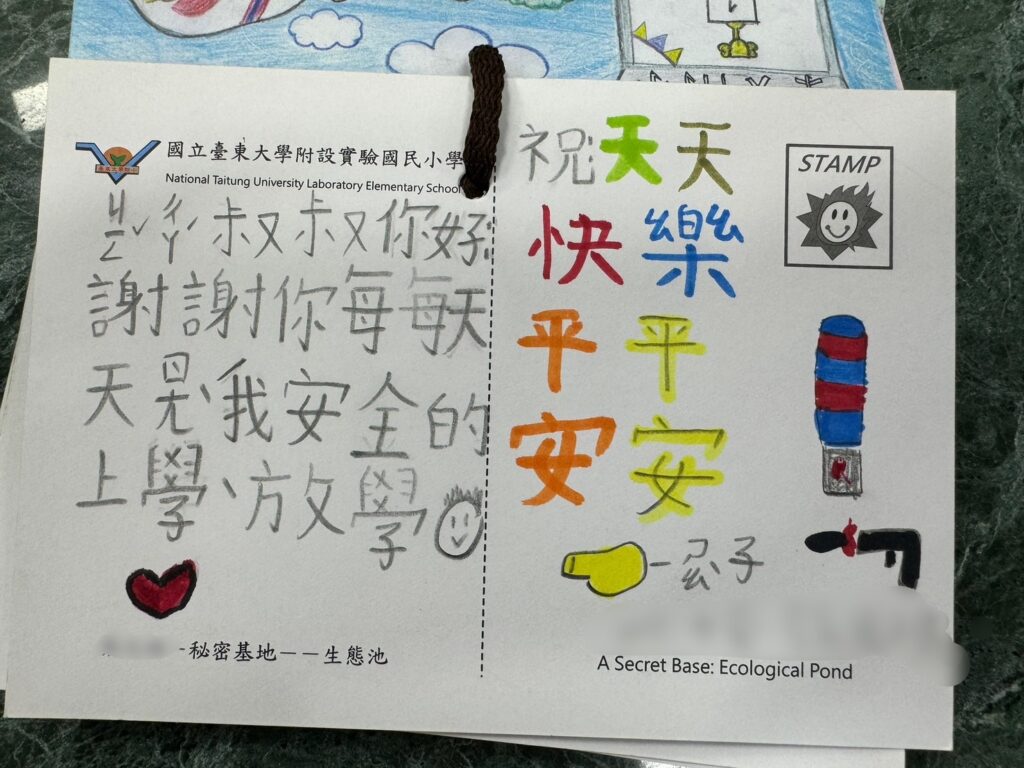 國立臺東大學附設實驗國民小學
National Taitung University Laboratory Elementary School
ㄐㄧㄥˇ ㄔㄚˊ 叔叔你好:
謝謝你每每天
天ㄖㄤˋ我安全的
上學、放學
-秘密基地——生態池
STAMP
祝:天天
快樂
平平
安安
子
A Secret Base: Ecological Pond